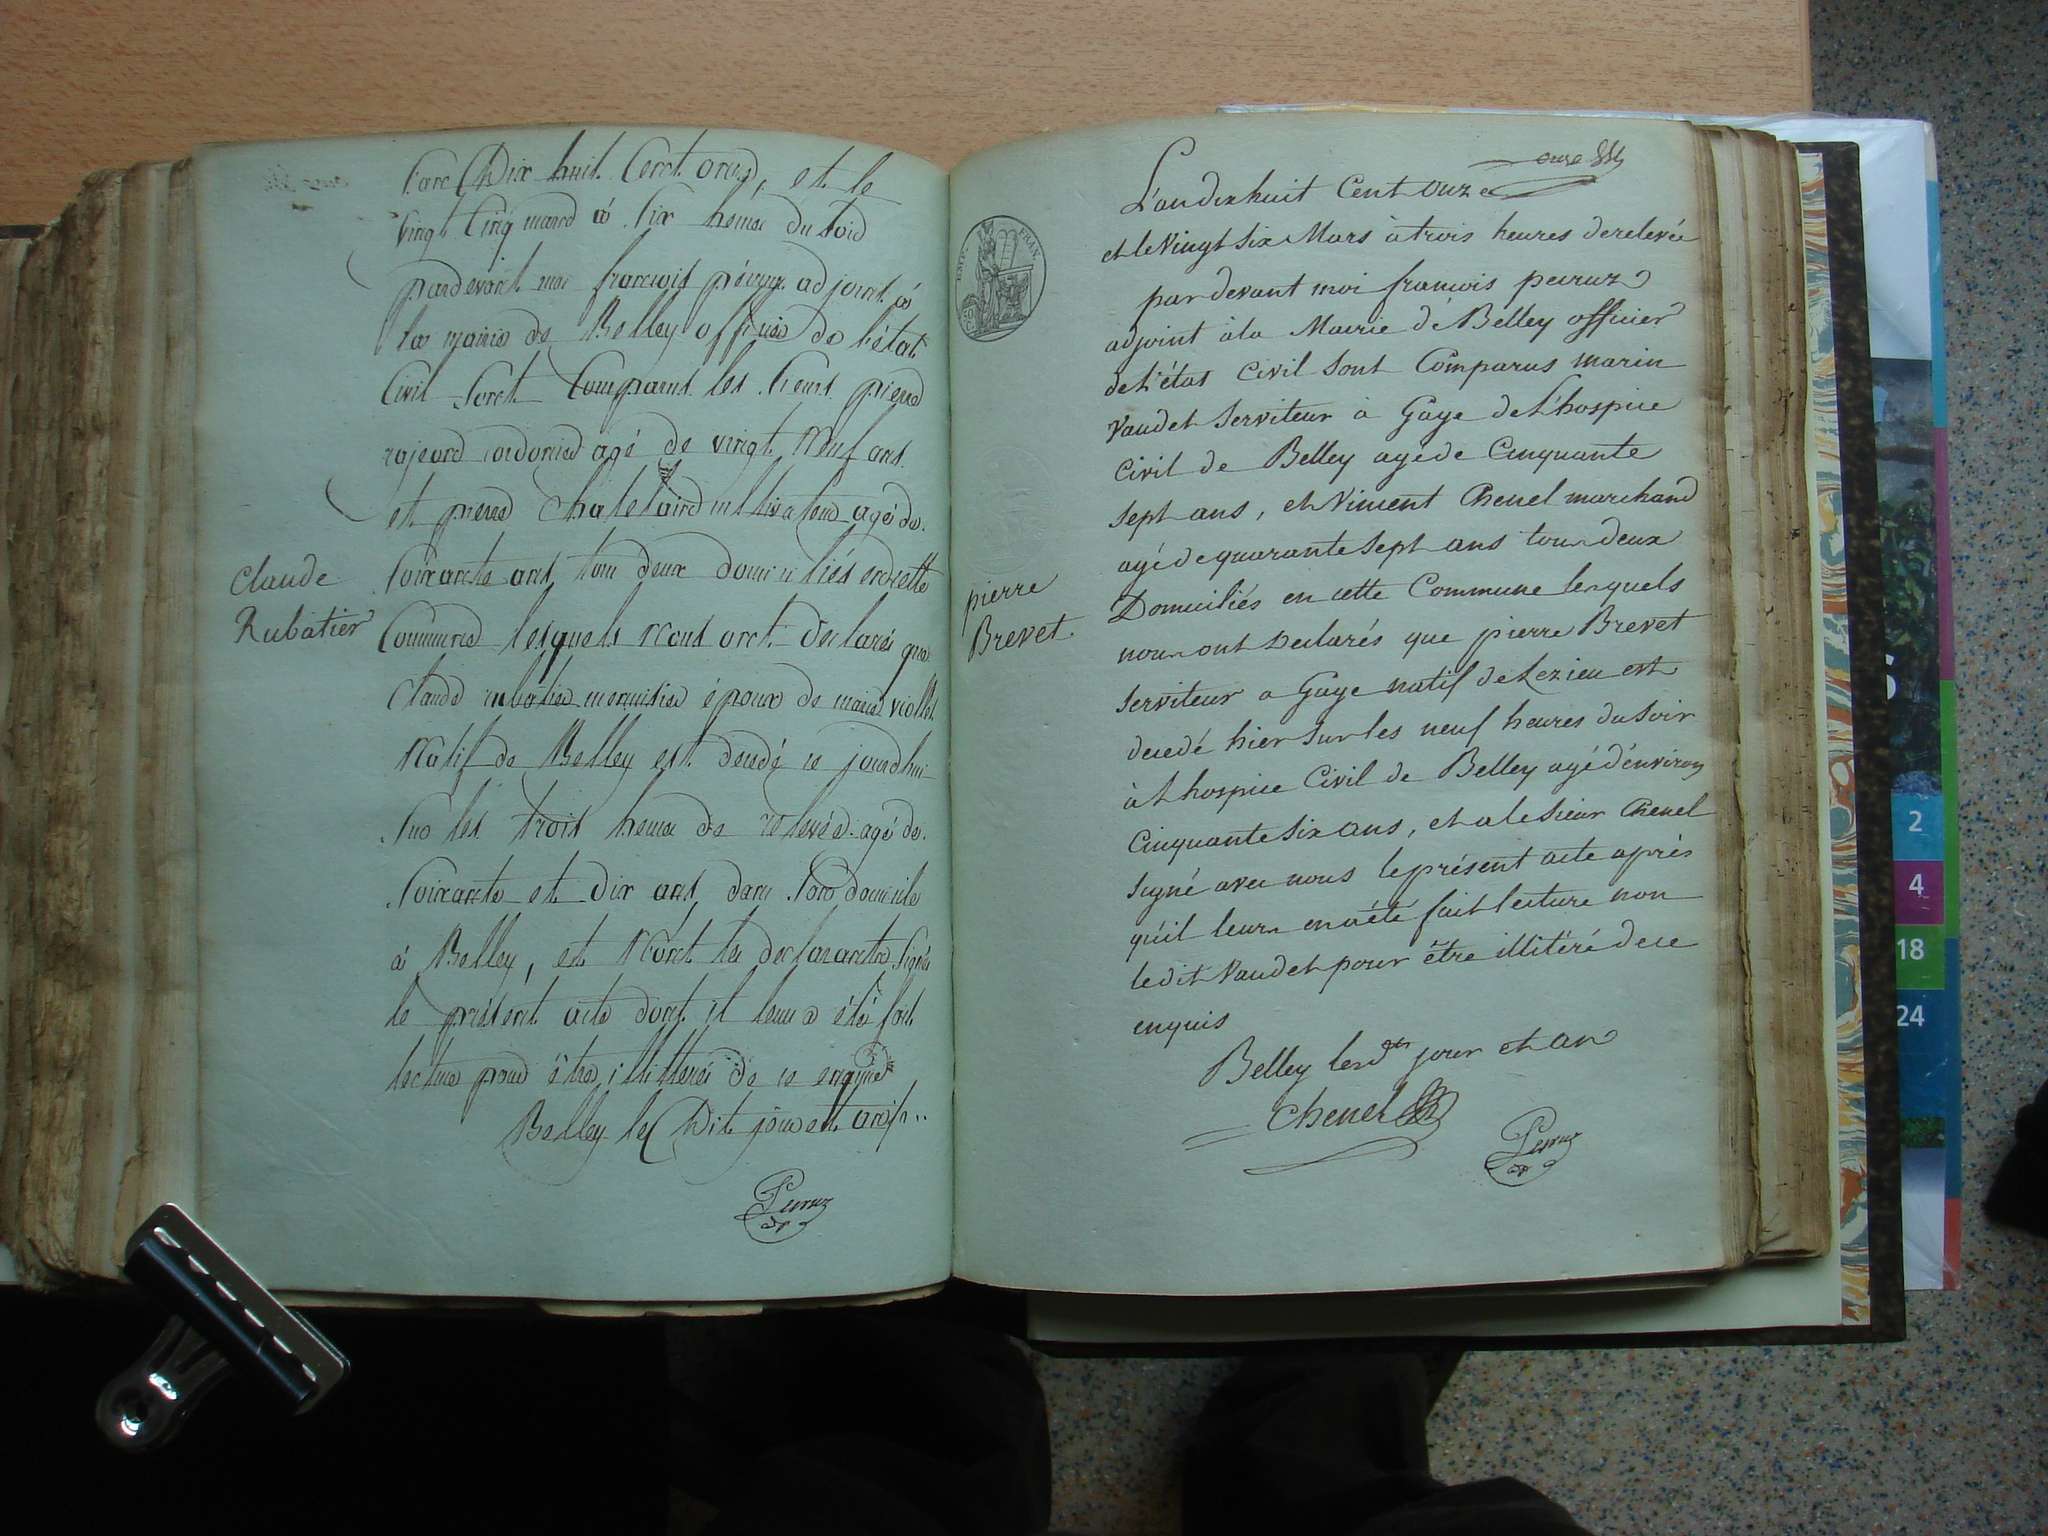 L'an Dix huit Cent onze, et le
vingt Cinq mars à six heures du soir
pardevant moi françois péruz adjoint à
la mairie de Belley officier de l'état
Civil sont Comparus les sieurs pierre
cordonier agé de vingt Neuf ans
et pierre Chatelain cultivateur agé de
soixante ans tous deux domiciliés en cette
Commune lesquels Nous ont déclarés que
Claude rubatier menuisier époux de marie viollet
Natif de Belley est décédé ce jourd'hui
sur les trois heures de relevée agé de
soixante et dix ans dans son domicile
à Belley, et N'ont les déclarants signé
le présent acte dont il leur a été fait
lecture pour être illitérés de ce enquis
Belley les Dit jour et an
Peruz
Claude
Rubatier
onze
L'an dix huit Cent onze
et le vingt six Mars à trois heures de relevée
par devant moi francois peruz
adjoint à la Mairie de Belley officier
de l'état Civil sont Comparus marin
Vaudet serviteur à Gage de L'hospice
Civil de Belley agé de Cinquante
sept ans, et Vincent Chenel marchand
agé de quarante sept ans tous deux
Domiciliés en cette Commune lesquels
nous ont Déclarés que pierre Brevet
serviteur a Gage natif de Lezieu est
décedé hier sur les neuf heures du soir
à L'hospice Civil de Belley agé d'environ
Cinquante six ans, et a le sieur Chenel
signé avec nous le présent acte après
qu'il leur en a été fait lecture non
le dit Vaudet pour être illitéré de ce
enquis
Belley les d.ts jour et an
Chenel
Peruz
pierre
Brevet
EMP. FRAN.
S
2
4
18
24